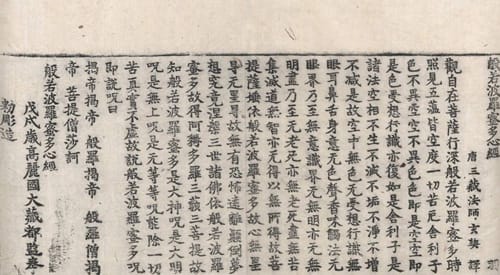 般若波羅蜜多心經
唐三藏法師玄奘 譯
觀自在菩薩行深般若波羅蜜多時
照見五蘊皆空度一切苦厄舍利子
色不異空空不異色色即是空空即
是色受想行識亦復如是舍利子是
諸法空相不生不滅不垢不淨不增
不減是故空中无色无受想行識无
眼耳鼻舌身意无色聲香味觸法无
眼界乃至无意識界无無明亦无無
明盡乃至无老死亦无老死盡无苦
集滅道無智亦无得以無所得故菩
提薩埵依般若波羅蜜多故心無罣
㝵无罣㝵故無有恐怖遠離顚倒夢
想究竟涅槃三世諸佛依般若波羅
蜜多故得阿耨多羅三藐三菩提故
知般若波羅蜜多是大神呪是大明
呪是無上呪是无等等呪能除一切
苦真實不虛故說般若波羅蜜多呪
即說呪曰
揭帝揭帝 般羅揭帝 般羅僧揭
帝 菩提僧莎訶
般若波羅蜜多心經
戊戌歲高麗國大藏都監奉
勅彫造